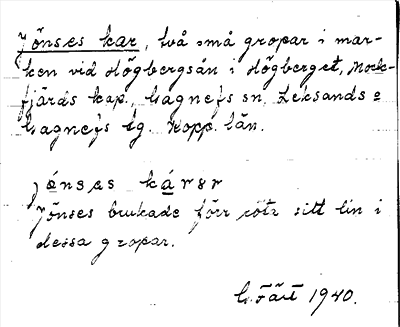 Jönses kar, två små gropar i mar-
ken vid Högbergsån i Högberget, Mock-
fjärds kap., Gagnefs sn. Leksands o
Gagnefs tg. Kopp. län.
jönses kárər
Jönses brukade förr röta sitt lin i
dessa gropar.
1940.